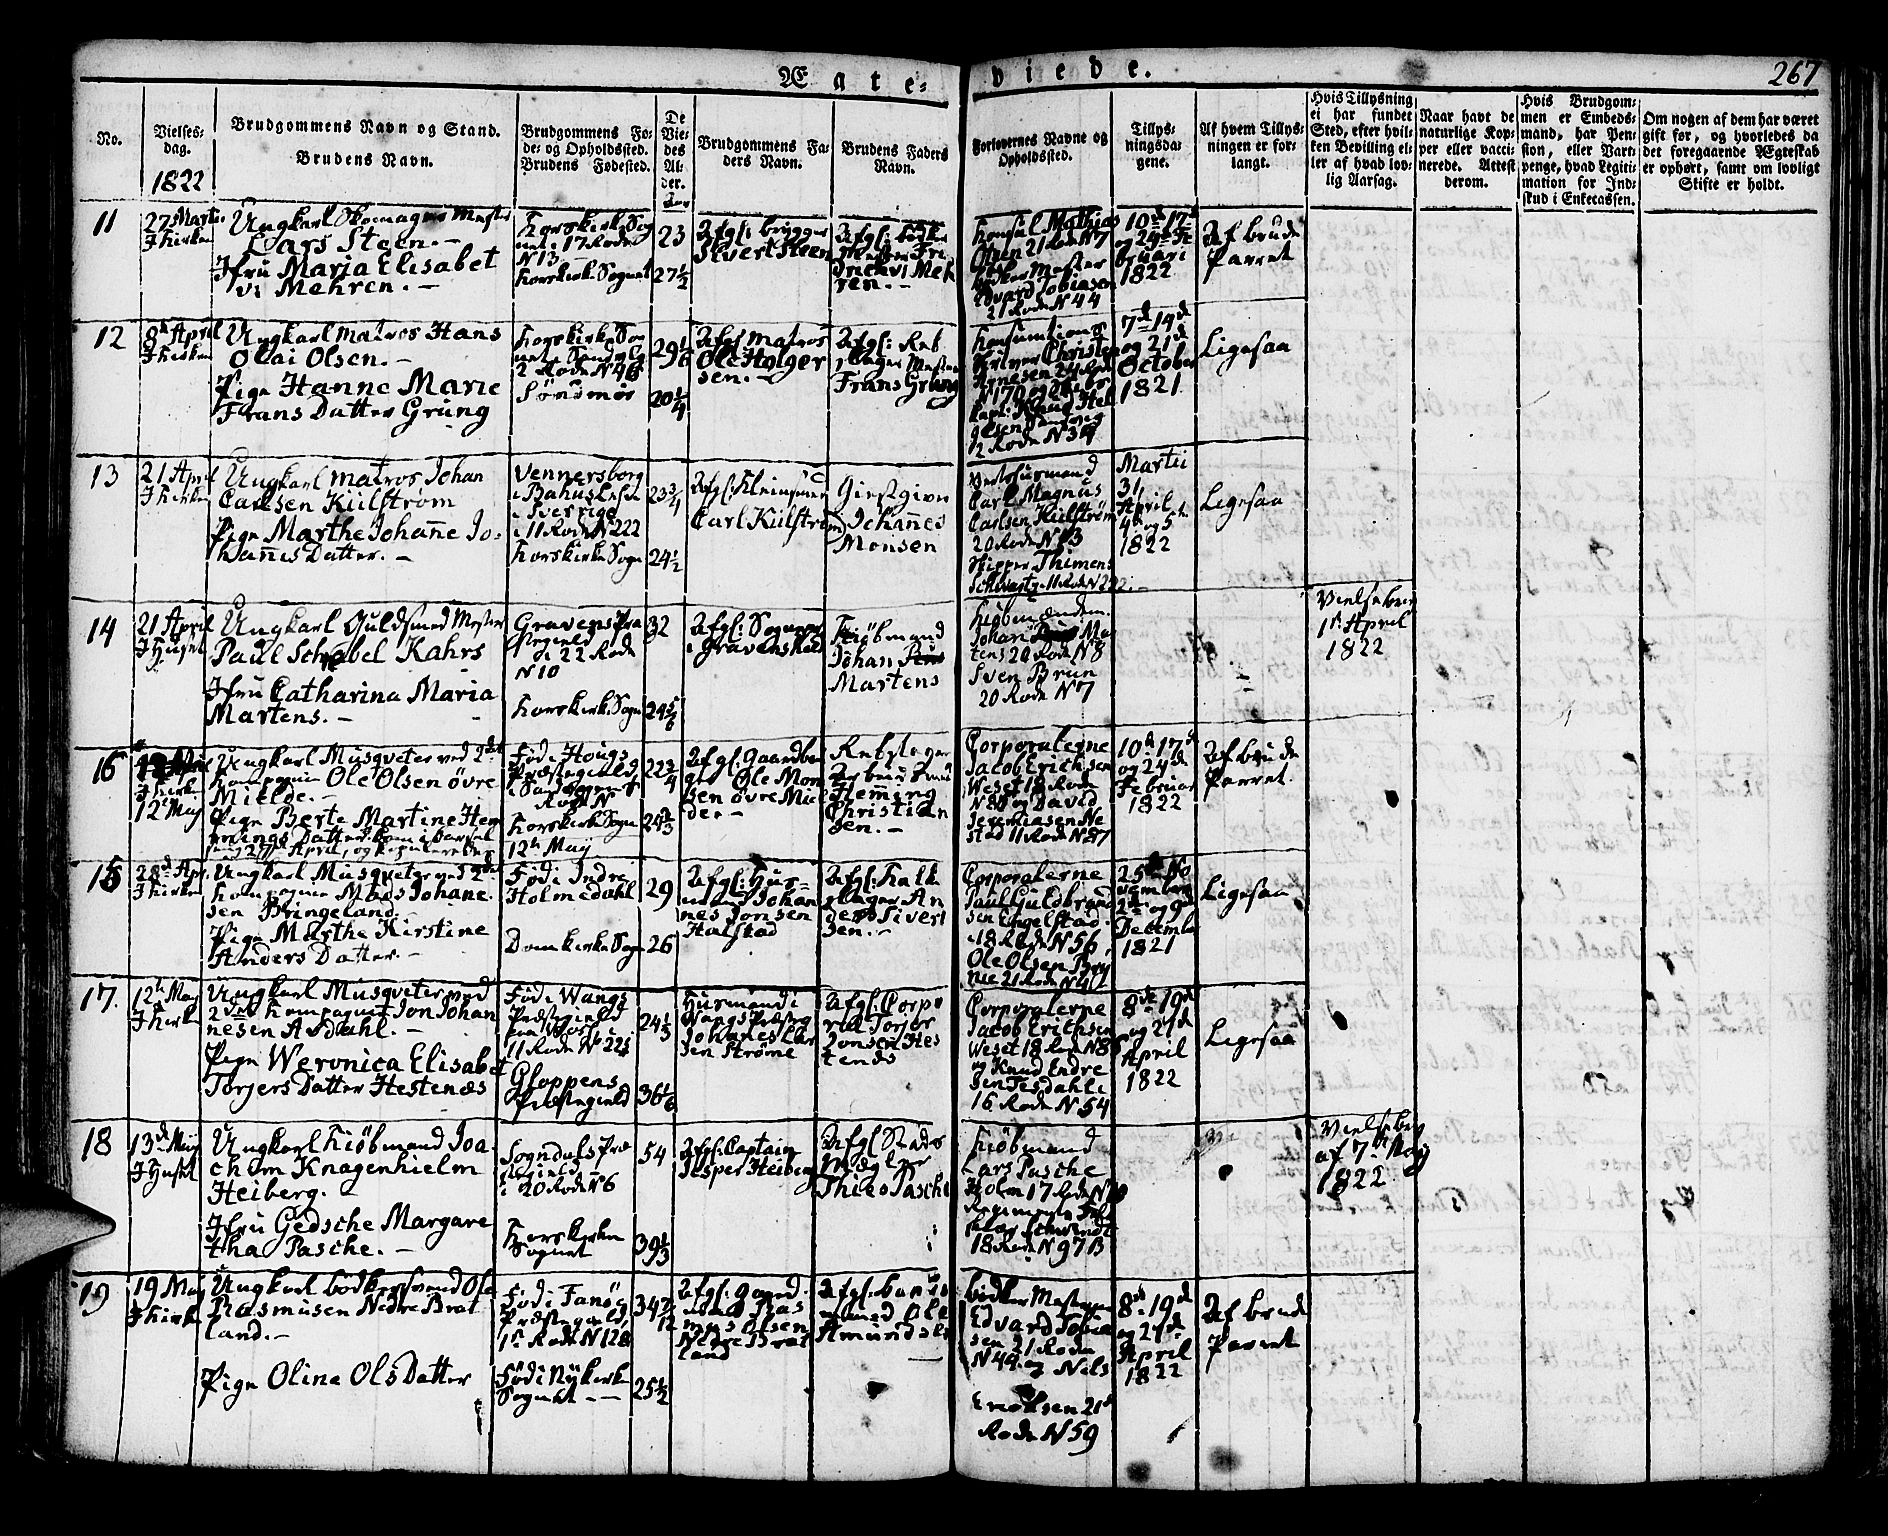 Ægte-
viede.
267
No.
Vielses-
dag.
1822
Brudgommens Navn og Stand.
Brudens Navn.
Brudgommens Fø-
de- og Opholdssted.
Brudens Fødested.
De
Vie-
des
Al-
der.
Brudgommens Fa-
ders Navn.
Brudens Faders
Navn.
Forlovernes Navne og
Opholdssted.
Tillys-
ningsda-
gene.
Af hvem Tillys-
ningen er for-
langt.
Hvis Tillysning
ei har fundet
Sted, efter hvil-
ken Bevilling el-
ler af hvad lov-
lig Aarsag.
Naar havt de
naturlige Kop-
per eller vacci-
nerede. Attest
derom.
Hvis Brudgom-
men er Embeds-
mand, har Pen-
sion, eller Vart-
penge, hvad Legiti-
mation for Ind-
skud i Enkecassen.
Om nogen af dem har været
gift før, og hvorledes da
det foregaaende Ægteskab
er ophørt, samt om lovligt
Skifte er holdt.
11
27 Marti
I Kirken
Ungkarl Skomager Mester
Lars Steen. –
Jfru Maria Elisabet
vi Mehren. –
Korskirke Sog
net i 17 Rode
N 13 –
Korskirke Sognet
23
27 1/2
Afgl: brygger
Sivert Steen
Afgl:
Mester Fri
drich vi Meh
ren. –
Konsul Mathias
21 Rode N 7
Mester
Edvard Tobiasen
21 Rode N 44
10de 17de
og 24de Fe
bruari
1822
Af brude
Parret
12
8de April
I Kirken
Ungkarl Matros Hans
Olai Olsen. –
Pige Hanne Marie
Frans Datter Grung
Korskirke Sog
net i Sandvig
2 Rode N 46
Søndmør
29 1/6
20 1/4
Afgl Matros
Ole Holger
sen. –
Afgl: Reb
slager Mester
Frans Grung
Konsumtions
Christen
Arnesen 24 Rode
N 170 og
Knud Hel
gesen Sandvig
2 Rode N 34
7de 14de
og 21de
October
1821
Ligesaa
13
21 April
I Kirken
Ungkarl Matros Johan
Carlsen Kiilstrøm
Pige Marthe Johañe Jo-
hañes Datter. –
Vennersborg
i Bahus Lehn
i Sverrige
i 11 Rode N 222
Korskirke Sogn
23 3/4
24 1/2
Afgl: Kleinsmed
Carl Kiilstrøm
Giestgiver
Johañes
Monsen
Carl Magnus
Carlsen Kiilstrøm
20 Rode N 13
Skipper Thimens
Schwartz 11 Rode N 222. –
Martii
31,
April
4de og 5te
1822
Ligesaa
14
21 April
I Huset
Ungkarl Guldsmed Mester
Paul Schabel Kahrs
Jfru Catharina Maria
Martens. –
Gravens Præ
stegield
i 22 Rode
N 10
Korskirke Sogn
32
24 5/6
Afgl: Sogne
i Gravenskald
Kiøbmand
Johan
Martens
Kiøbmændene
Johan Ma
tens 20 Rode N 8
Sven Brun
20 Rode N 7
Vielsebrev
1st April
1822
16
I Kirken
12te Maj
Ungkarl Musqveter ved 2det
Kompagnie Ole Olsen øvre
Mielde. –
Pige Berte Martine Hem
mings Datter. kom i barsel
27de April, og kopuleredes
Fød i Hougs
Præstegield,
i Sandvigen 1st
Rode N
Korskirke Sogn
12te Maij
22 3/4
24 2/3
Afgl: Gaardbru
ger Ole Mon
sen øvre Miel
de. –
Rebslager
Arbeids Svend
Hemming
Christian
sen. –
Corporalerne
Jacob Erichsen
Weset 18 Rode
N 80 og David
Jeremiasen Ne
stad 11 Rode N 87
10de 17de
og 24de
Februari
1822
Af brude
Parret.
15
28de Apr.
I Kirken
Ungkarl Musqveter ved 2det
Kompagnie Mads Johane
sen Bringeland
Pige Marthe Kirstine
Anders Datter. –
Fød i Indre
Holmedahl
Domkirke Sogn
29
26
Afgl: Hus-
mand Johan
nes Jonsen
Halstad
Afgl: Kalk
slager An
ders Sivert
sen. –
Corporalerne
Paul Guldbrand
sen Engelstad
i 18 Rode N 56
Ole Olsen Brÿ
nie 21 Rode N 41
25de No
vember
2den og 9de
Decembr
1821
Ligesaa
17.
12te Maj
I Kirken
Ungkarl Musqveter ved
2det Kompagnie Jon Johan
nesen Avdahl. –
Pige Weronica Elisabet
Torjers Datter Hestenæs
Fød i Wangs
Præstegield
paa Voss i
11 Rode No 221
Gloppens
Præstegield
24 1/3
36 1/6
Husmand i
Wangs Præsteg
Johanes Lar
sen Strøme
Afgl: Corpo
ral Torjer
Jonsen Hes
tenes
Corporalerne
Jacob Erichsen
Weset 18 Rode N 80
og Knud Endre
sen Tesdahl i
16 Rode N 54
8de 14de
og 21de
April
1822
Ligesaa
18
13de Maij
I Huset
Ungkarl Kiøbmand Joa-
chim Knagenhielm
Heiberg.
Jfru Gedsche Margare
tha Pasche. –
Sogndals Præ
stegield
i 20 Rode N 6
Korskirke
Sognet
54
39 1/3
Afgl: Captain
Jesper Heiberg
Afgl Stads
Mægler
Thies Pasche
Kiøbmand
Lars Pasche
Holm 17 Rode N
18 Rode N 97 B
Vielsebrev
af 7de Maij
1822
19
19 Maj
I Kirken
Ungkarl bødkersvend Ole
Rasmusen Nedre Brat
land. –
Pige Olina Ols Datter
Fød i Fanøe
Præstegield,
1st Rode N 128
Fød i Nykirke
Sognet – –
34 7/12
25 1/2
Afgl: Gaard
mand Ras
mus Olsen
Nedre Brat
land
Afgl:
mand Ole
Amundsen
bødker Mesterne
Edvard Tobia
sen 21 Rode
N 44 og Nils
Ericksen 21de
Rode N 59
8de 14de
og 21de
April
1822
Af brude
Parret